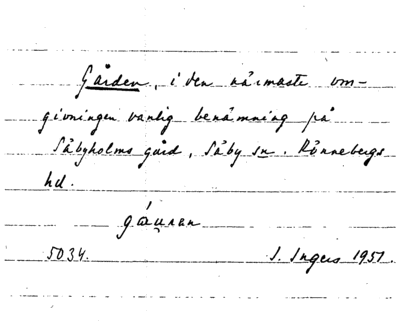 Gården, i den närmaste om-
givningen vanlig benämning på
Säbyholms gård, Säby sn. Rönnebergs
hd.
5034. I. Ingers 1951.